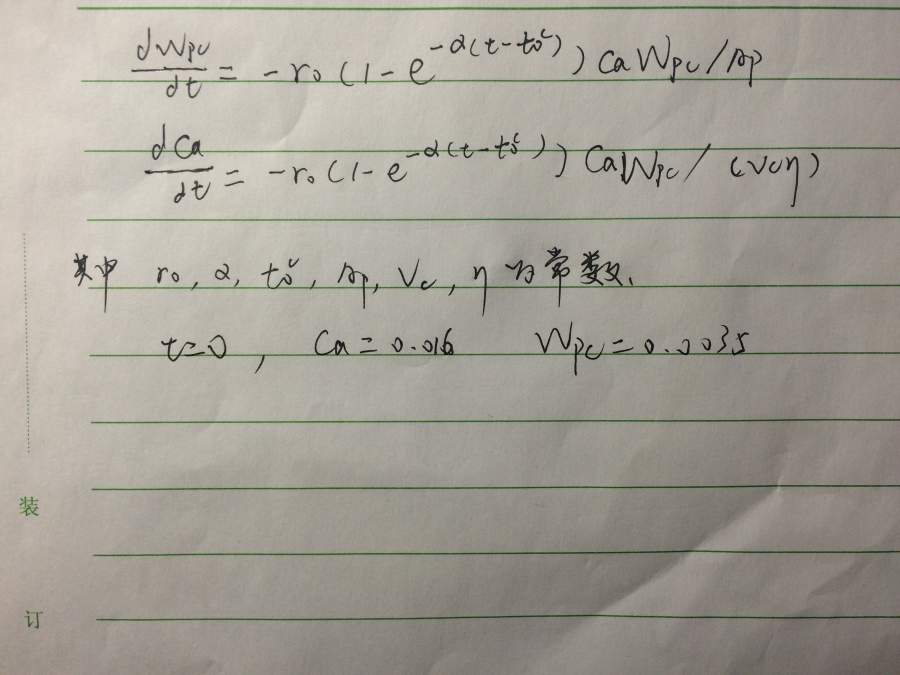 dWpc/dt = -r₀(1-e^{-α(t-t₀ᶜ)})CaWpc/Ap
dCa/dt = -r₀(1-e^{-α(t-t₀ᶜ)})CaWpc/(Vcη)
其中 r₀, α, t₀ᶜ, Ap, Vc, η为常数.
t=0, Ca=0.016 Wpc=0.0035
装
订